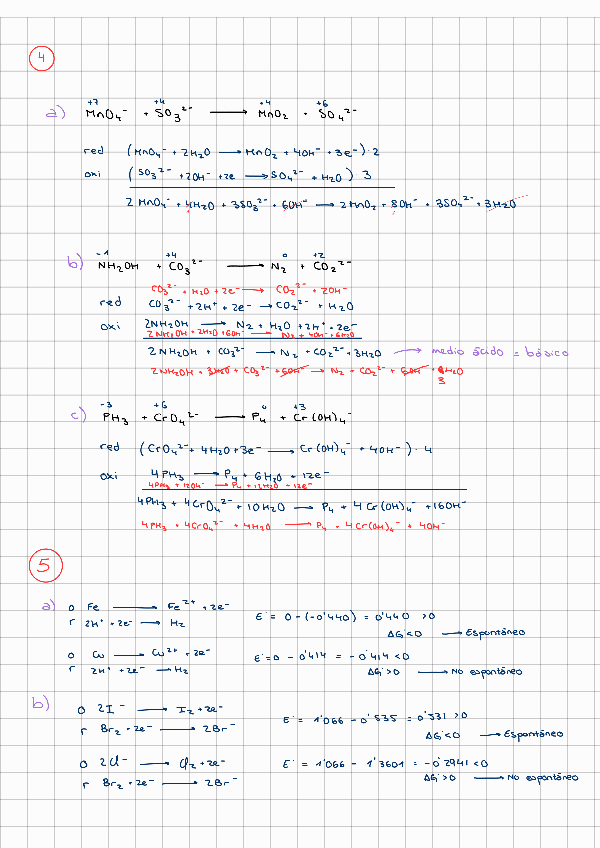 4
+7 +4 +4 +6
a) MnO₄⁻ + SO₃²⁻ ⟶ MnO₂ + SO₄²⁻
red (MnO₄⁻ + 2H₂O ⟶ MnO₂ + 4OH⁻ + 3e⁻)·2
oxi (SO₃²⁻ + 2OH⁻ + 2e ⟶ SO₄²⁻ + H₂O) 3
2 MnO₄⁻ + 4H₂O + 3SO₃²⁻ + 6OH⁻ ⟶ 2MnO₂ + 8OH⁻ + 3SO₄²⁻ + 3H₂O
-1 +4 0 +2
b) NH₂OH + CO₃²⁻ ⟶ N₂ + CO₂²⁻
CO₃²⁻ + H₂O + 2e⁻ ⟶ CO₂²⁻ + 2OH⁻
red CO₃²⁻ + 2H⁺ + 2e⁻ → CO₂²⁻ + H₂O
oxi 2NH₂OH ⟶ N₂ + H₂O + 2H⁺ + 2e⁻
2NH₂OH + 2H₂O + 6OH⁻ ⟶ N₂ + 4OH⁻ + 6H₂O
2NH₂OH + CO₃²⁻ ⟶ N₂ + CO₂²⁻ + 3H₂O ⟶ medio ácido = básico
2NH₂OH + 3H₂O + CO₃²⁻ + 6OH⁻ → N₂ + CO₂²⁻ + 6OH⁻ + H₂O
3
-3 +6 0 +3
c) PH₃ + CrO₄²⁻ ⟶ P₄ + Cr(OH)₄⁻
red (CrO₄²⁻ + 4H₂O + 3e⁻ ⟶ Cr(OH)₄⁻ + 4OH⁻)·4
oxi 4PH₃ ⟶ P₄ + 6H₂O + 12e⁻
4PH₃ + 12OH⁻ → P₄ + 12H₂O + 12e⁻
4PH₃ + 4CrO₄²⁻ + 10H₂O ⟶ P₄ + 4Cr(OH)₄⁻ + 16OH⁻
4PH₃ + 4CrO₄²⁻ + 4H₂O ⟶ P₄ + 4Cr(OH)₄⁻ + 4OH⁻
5
a) o Fe ⟶ Fe²⁺ + 2e⁻
r 2H⁺ + 2e⁻ ⟶ H₂ E° = 0 - (-0'440) = 0'440 >0
ΔG°<0 ⟶ Espontáneo
o Cu ⟶ Cu²⁺ + 2e⁻ E° = 0 - 0'414 = -0'414 <0
r 2H⁺ + 2e⁻ ⟶ H₂ ΔG°>0 ⟶ No espontáneo
b) o 2I⁻ ⟶ I₂ + 2e⁻
r Br₂ + 2e⁻ ⟶ 2Br⁻ E° = 1'066 - 0'535 = 0'531 >0
ΔG°<0 ⟶ Espontáneo
o 2Cl⁻ ⟶ Cl₂ + 2e⁻ E° = 1'066 - 1'3601 = -0'2941 <0
r Br₂ + 2e⁻ ⟶ 2Br⁻ ΔG°>0 ⟶ No espontáneo